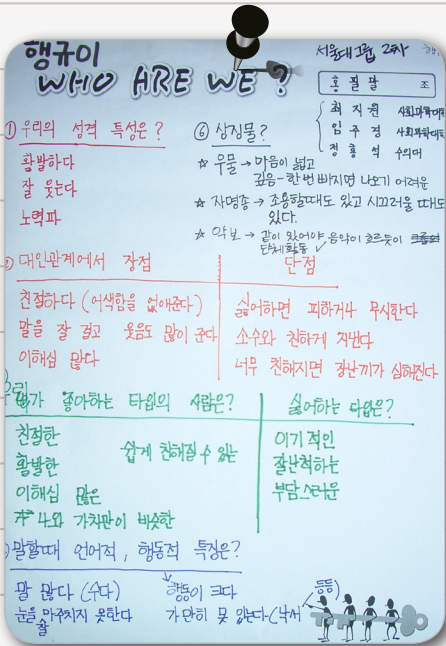 행규이
WHO ARE WE?
서울대그룹 2차
홍필팔 조
최지원 사회과학대
임주경 사회과학대
정홍석 수의대
① 우리의 성격 특성은?
활발하다
잘 웃는다
노력파
⑥ 상징물?
☆ 우물 → 마음이 넓고
깊음 - 한번 빠지면 나오기 어려운
☆ 자명종 → 조용할때도 있고 시끄러울 때도
있다.
☆ 악보 → 같이 있어야 음악이 흐르듯이
단체활동
대인관계에서 장점
단점
친절하다 (어색함을 없애준다)
말을 잘 걸고 웃음도 많이 준다
이해심 많다
싫어하면 피하거나 무시한다
소수와 친하게 지낸다
너무 친해지면 장난끼가 심해진다
우리
가 좋아하는 타입의 사람은?
싫어하는 타입은?
친절한
쉽게 친해질 수 있는
활발한
이해심 많은
나와 가치관이 비슷한
이기적인
잘난척하는
부담스러운
말할때 언어적, 행동적 특징은?
말 많다 (수다)
눈을 마주치지 못한다
잘
행동이 크다
가만히 못 있는다 (낙서
등등)